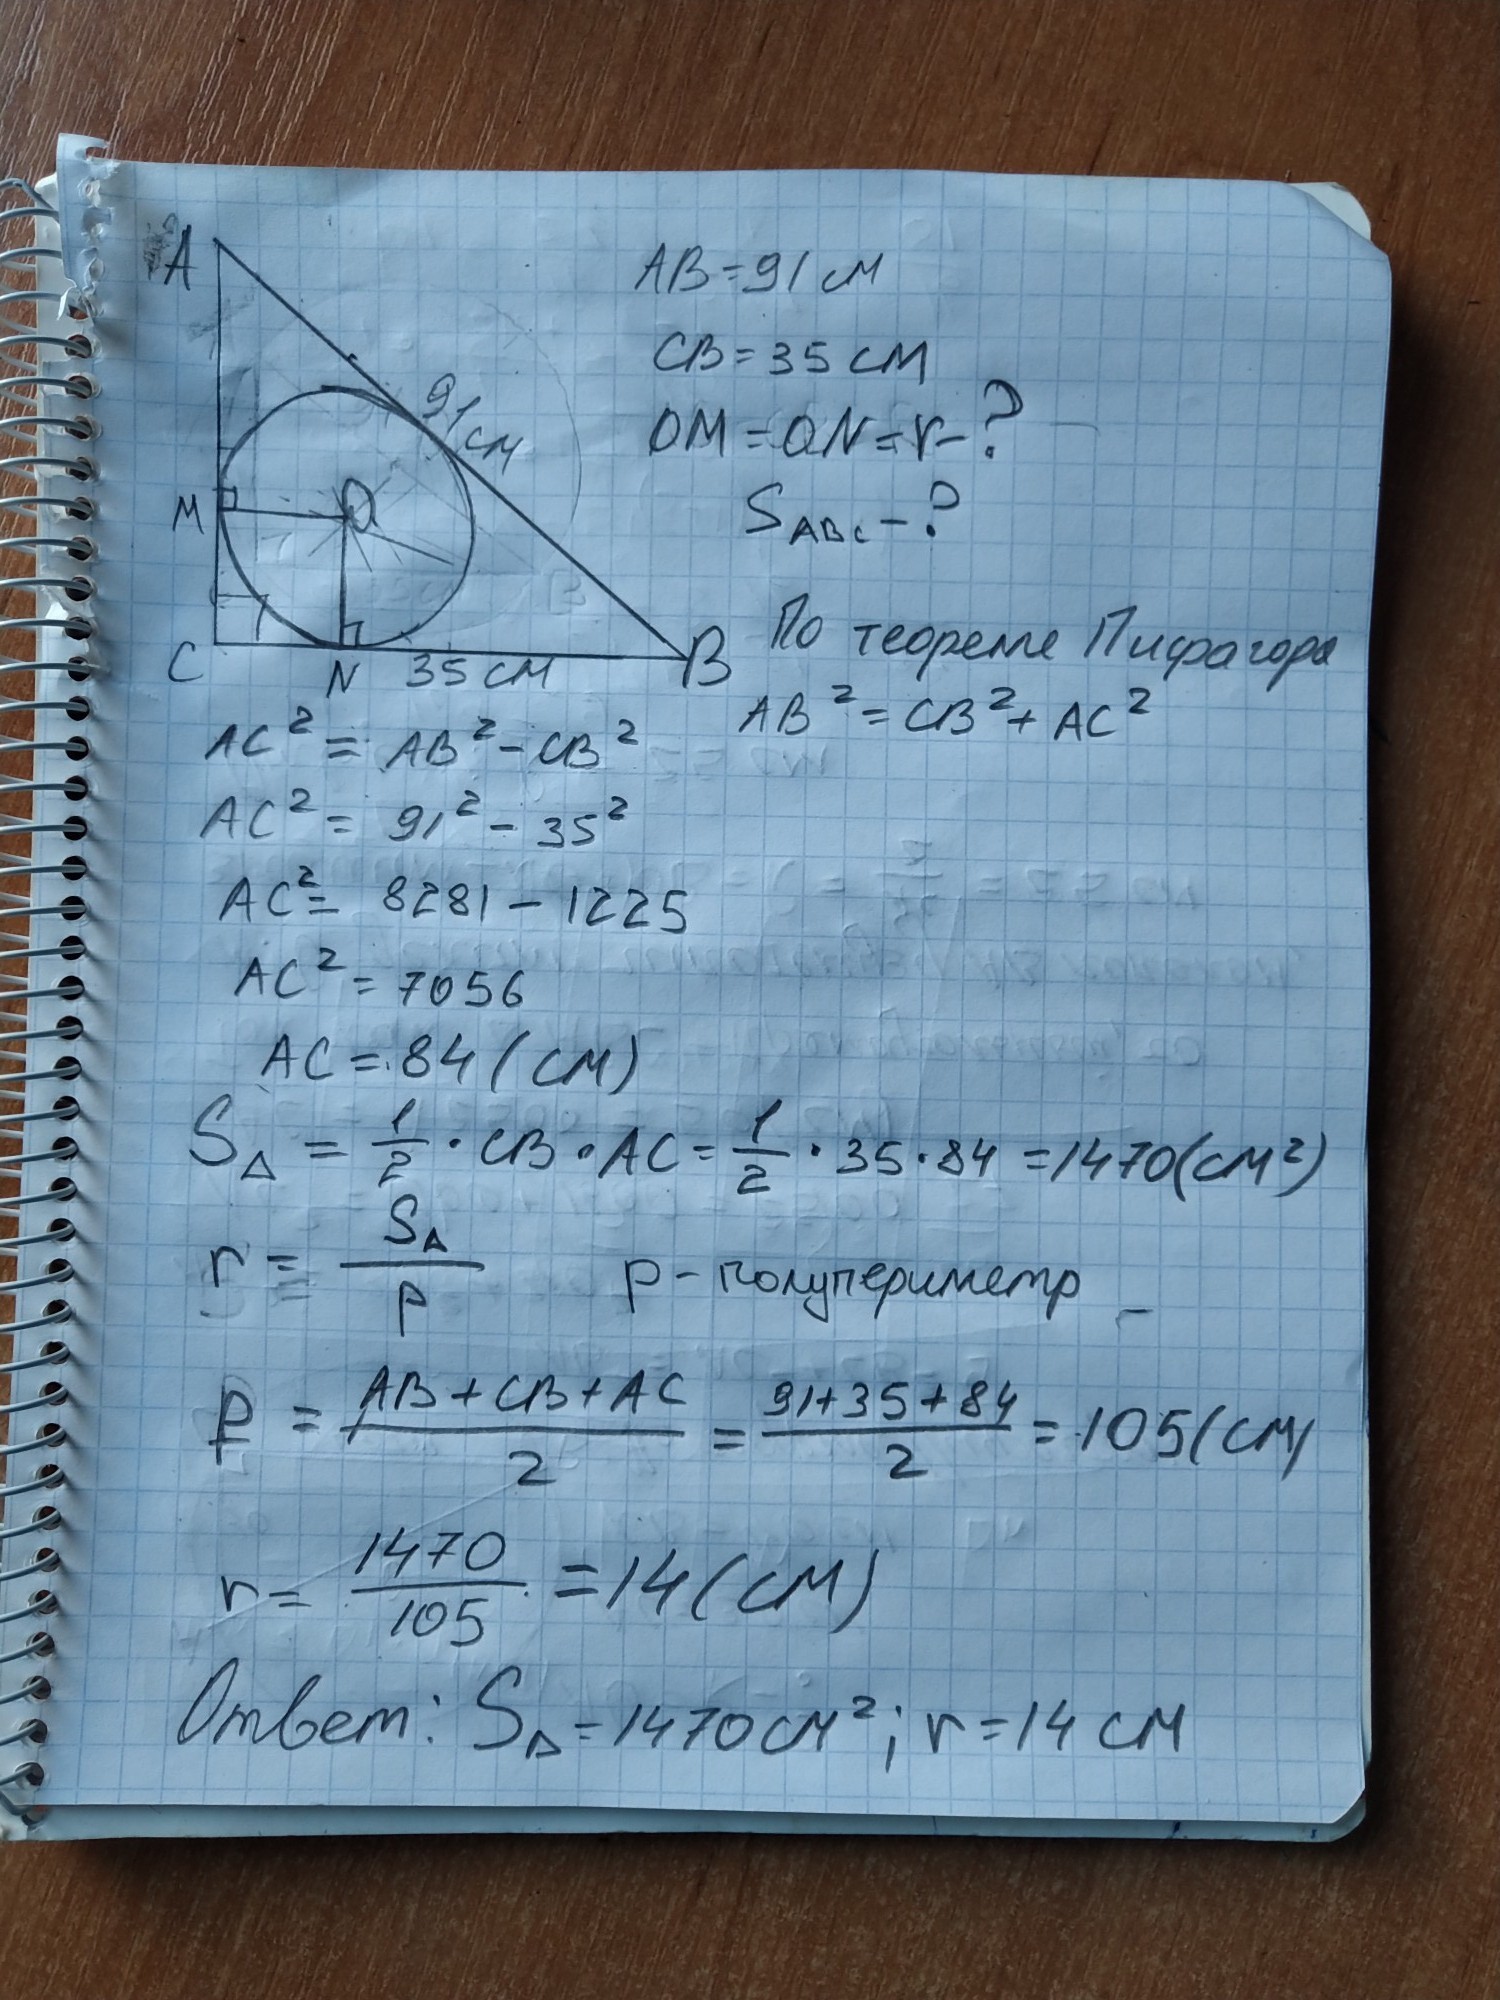 A
AB = 91 см
CB = 35 см
91 см
OM = ON = r - ?
O
M
S ABC - ?
C
N
35 см
B
По теореме Пифагора
AB² = CB² + AC²
AC² = AB² - CB²
AC² = 91² - 35²
AC² = 8281 - 1225
AC² = 7056
AC = 84 (см)
S△ = 1/2 · CB · AC = 1/2 · 35 · 84 = 1470 (см²)
r = S△/p p - полупериметр
p = (AB + CB + AC)/2 = (91 + 35 + 84)/2 = 105 (см)
r = 1470/105 = 14 (см)
Ответ: S△ = 1470 см²; r = 14 см